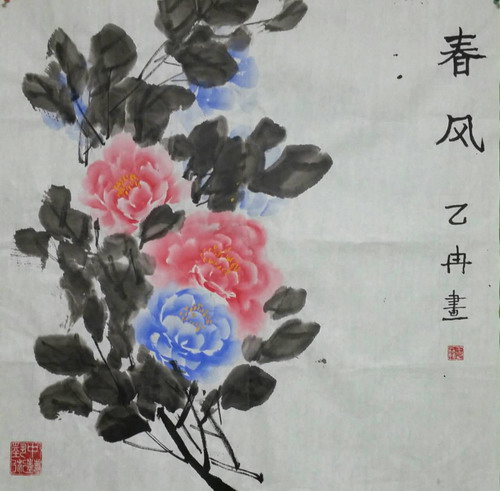 春风
乙冉畫